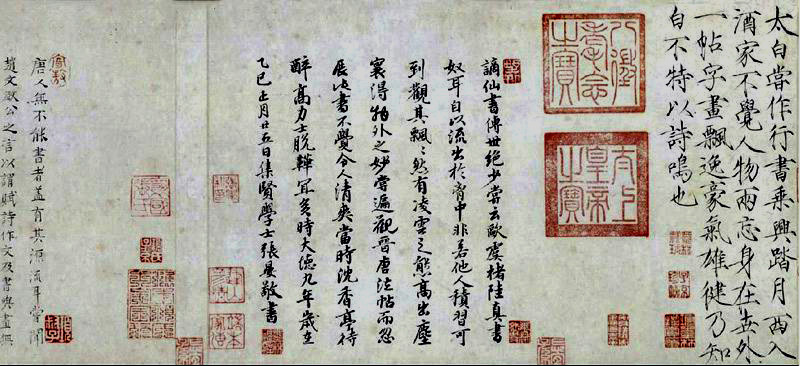 太白嘗作行書乘興踏月西入
酒家不覺人物兩忘身在世外
一帖字畫飄逸豪氣雄健乃知
白不特以詩鳴也
八徵耄念之寶
太上皇帝之寶
謫仙書傳世絕少嘗云歐虞褚陸真書
奴耳自以流出於胸中非若他人積習可
到觀其飄〻然有凌雲之態高出塵
寰得物外之妙嘗遍觀晉唐法帖而忽
展此書不覺令人清爽當時沈香亭待
醉高力士脫鞾宜矣時大德九年歲在
乙巳正月廿五日集賢學士張晏敬書
唐人無不能書者蓋有其源流耳嘗聞
趙文敏公之言以謂賦詩作文及書與畫無